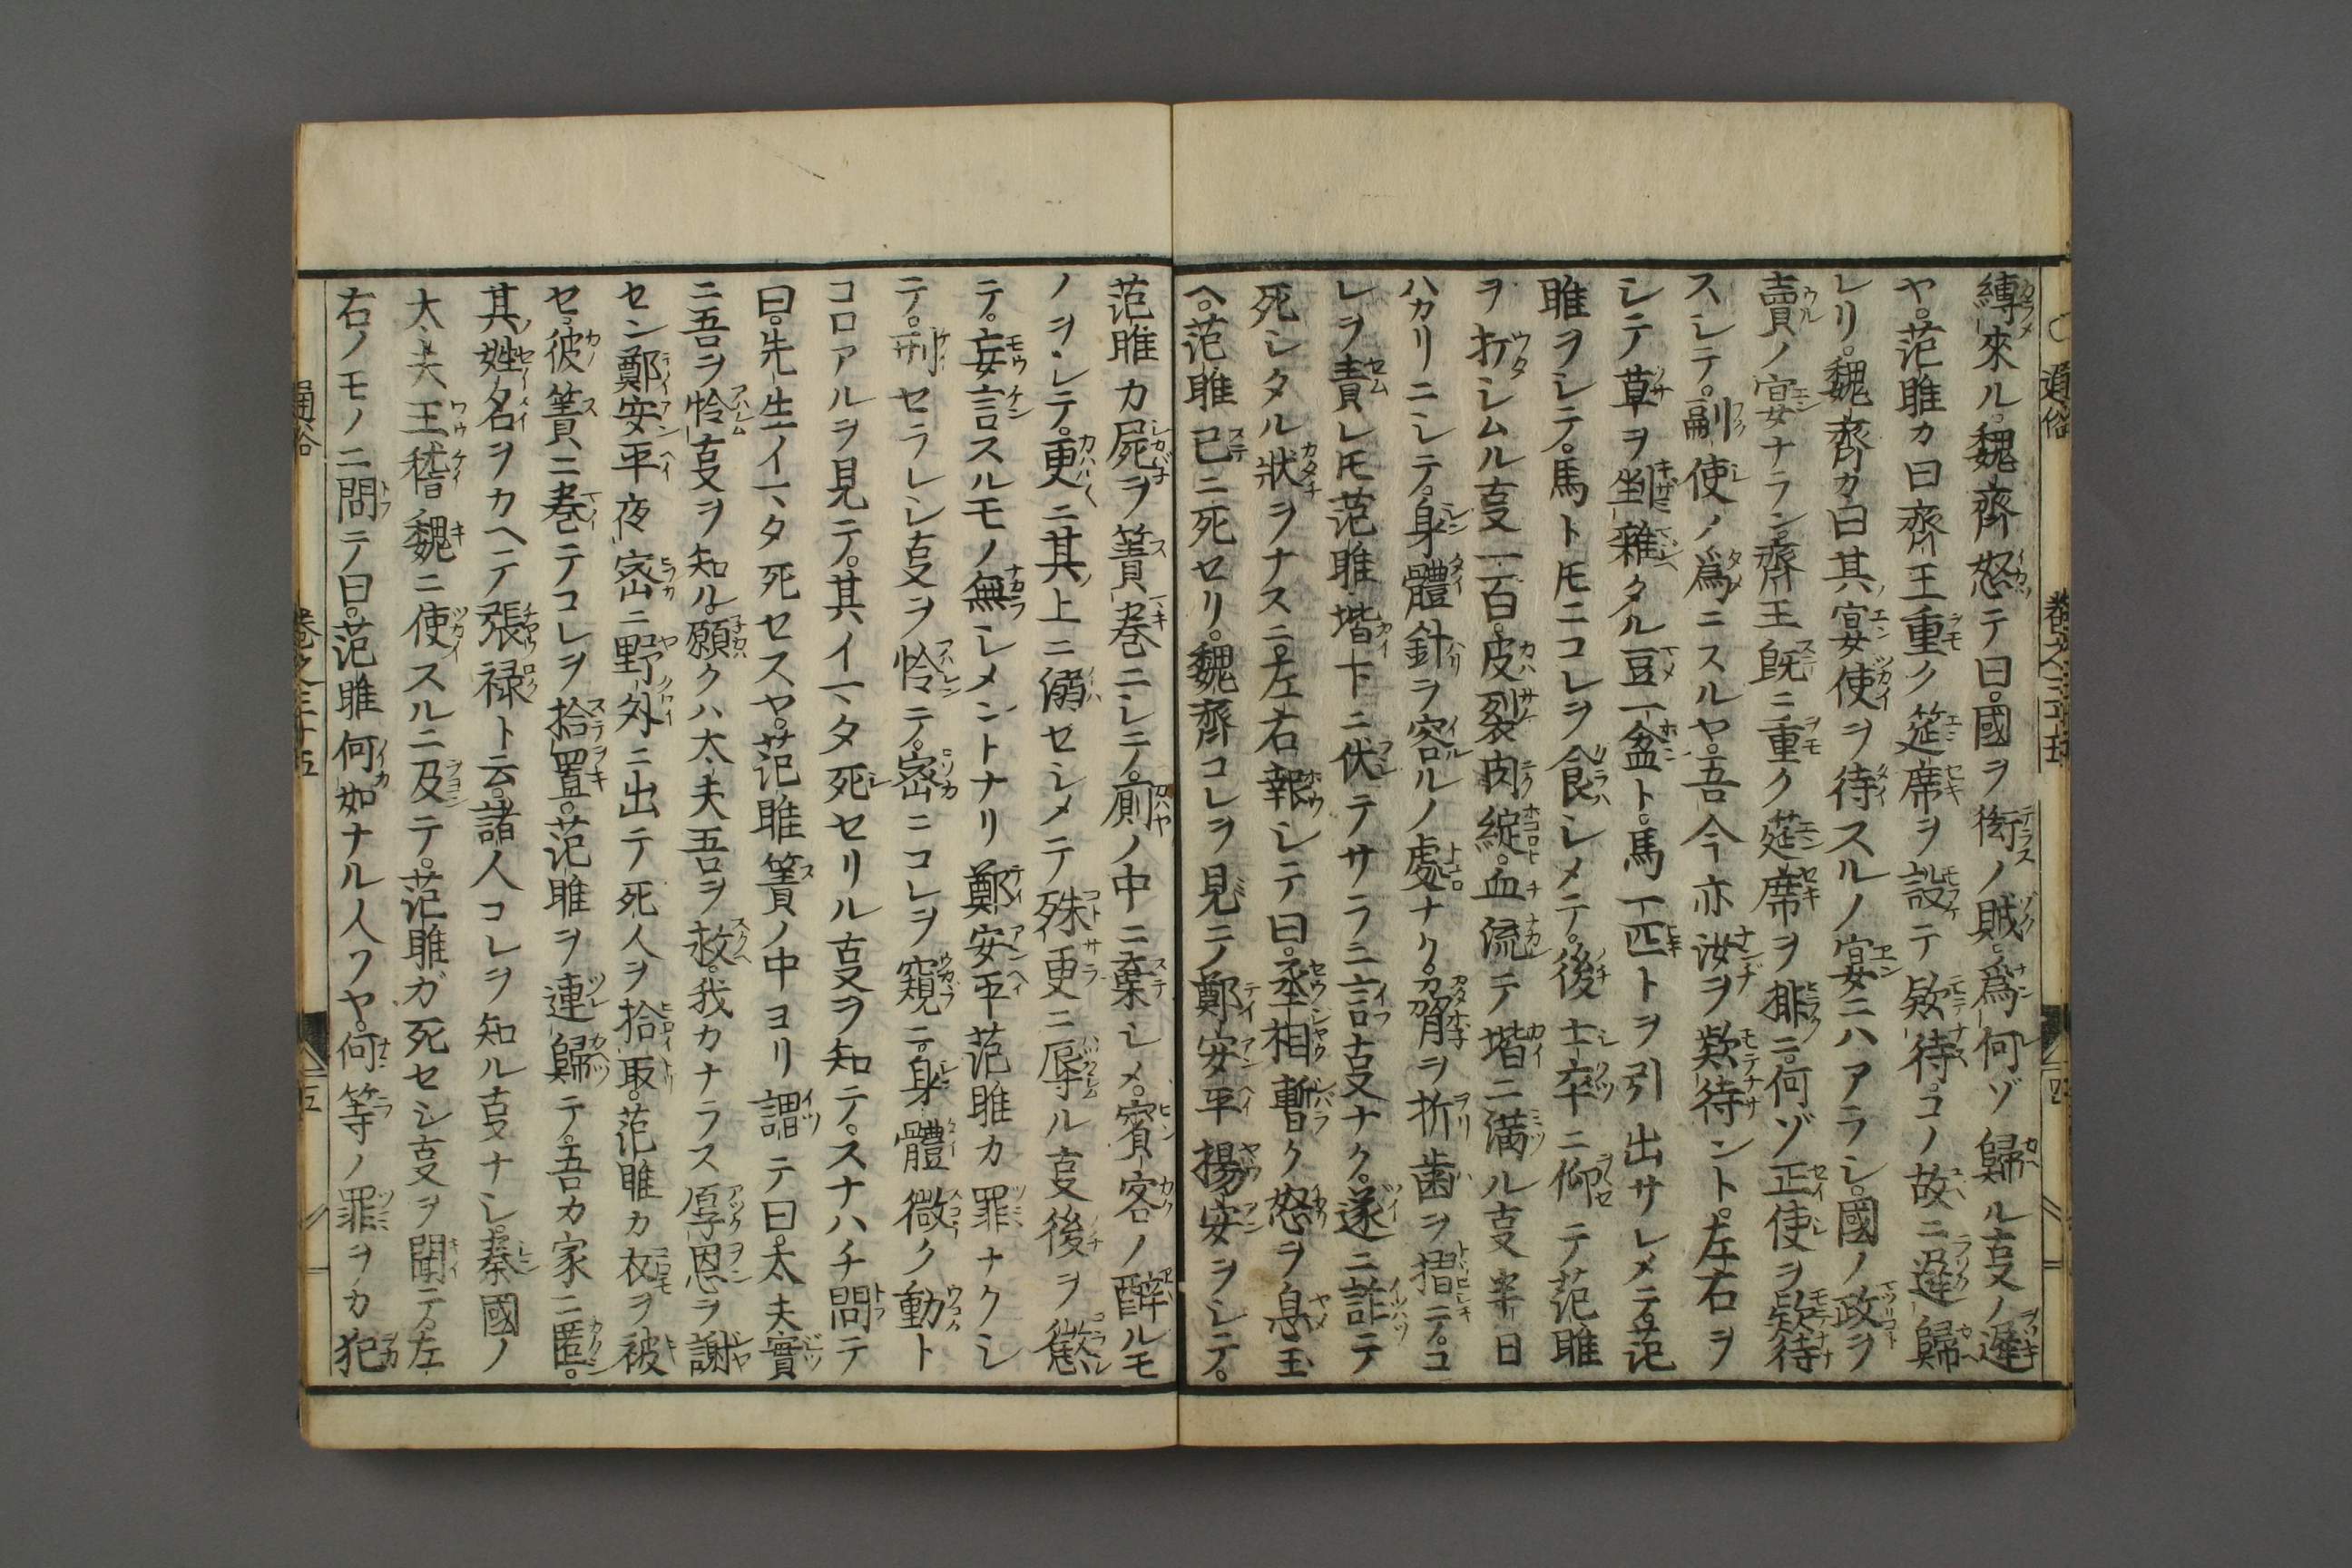 縛來ル。魏齊怒テ曰。國ヲ衒ノ賊。爲何ゾ歸ル㕝ノ遲キ
ヤ。范雎カ曰齊王重ク筵席ヲ設テ欵待コノ故ニ遲歸
レリ。魏齊カ曰其宴使ヲ待スルノ宴ニハアラレ。國ノ政ヲ
賣ノ宴ナラン。齊王既ニ重ク莚席ヲ排ニ。何ゾ正使ヲ欵待
スレテ。副使ノ爲ニスルヤ。吾今亦汝ヲ欵待ント。左右ヲ
シテ草ヲ剉雜タル豆一盆ト。馬一匹トヲ引出サレメテ。范
雎ヲシテ。馬トモニコレヲ食レメテ。後士卒ニ仰テ范雎
ヲ打レムル㕝一百。皮裂肉綻。血流テ堦ニ滿ル㕝半日
ハカリニシテ。身體針ヲ容ルノ處ナク。脅ヲ折歯ヲ摺テ。コ
レヲ責レモ范雎堦下ニ伏テサラニ言㕝ナク。遂ニ詐テ
死シタル狀ヲナスニ。左右報レテ曰。丞相暫ク怒ヲ息玉
ヘ。范雎已ニ死セリ。魏齊コレヲ見ニノ鄭安平揚安ヲレテ。
范雎カ屍ヲ簀巻ニレテ。厠ノ中ニ棄レメ。賓客ノ醉ルモ
ノヲシテ。更ニ其上ニ溺セシメテ殊更ニ辱ル㕝後ヲ懲
テ。妄言スルモノ無レメントナリ鄭安平范雎カ罪ナクシ
テ。刑セラレシ㕝ヲ怜テ。密ニコレヲ窺ニ。身體微ク動ト
コロアルヲ見テ。其イマタ死セリル㕝ヲ知テ。スナハチ問テ
曰。先生イマタ死セスヤ。范雎簀ノ中ヨリ謂テ曰。太夫實
ニ吾ヲ怜㕝ヲ知ル。願クハ大夫吾ヲ救。我カナラス厚恩ヲ謝
セン鄭安平夜密ニ野外ニ出テ死人ヲ拾取。范雎カ衣ヲ被
セ。彼簀ニ巻テコレヲ捨置。范雎ヲ連歸テ。吾カ家ニ匿。
其姓名ヲカヘテ張禄ト云。諸人コレヲ知ル㕝ナシ。秦國ノ
大夫王稽魏ニ使スルニ及テ。范雎ガ死セシ㕝ヲ聞テ。左
右ノモノニ問テ曰。范雎何如ナル人フヤ。何等ノ罪ヲカ犯